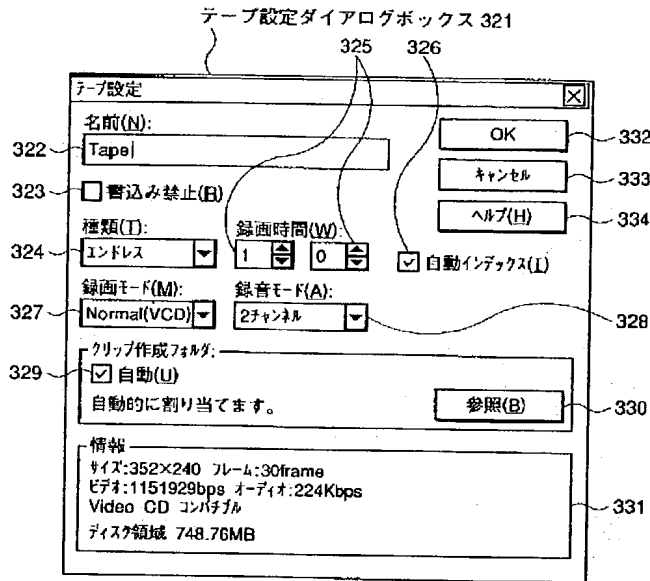 テープ設定ダイアログボックス 321
325 326
テープ設定
名前(N):
322 Tape
OK 332
323 書込み禁止(R)
キャンセル 333
ヘルプ(H) 334
種類(T): 録画時間(W):
324 エンドレス 1 0 自動インデックス(I)
録画モード(M): 録音モード(A):
327 Normal(VCD) 2チャンネル 328
クリップ作成フォルダ:
329 自動(U)
自動的に割り当てます。 参照(B) 330
情報
サイズ:352×240 フレーム:30frame
ビデオ:1151929bps オーディオ:224Kbps
Video CD コンパチブル 331
ディスク領域 748.76MB